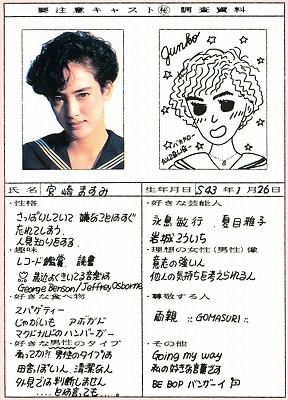 要注意キャスト㊙調査資料
Junko
氏名 宮崎ますみ
生年月日 S43年1月26日
・性格
さっぱりしていて 嫌なことはすぐ
忘れてしまう。
人見知りをする。
・趣味
レコード鑑賞、読書
最近よくきいてる音楽は
George Benson/Jeffrey Osborne
・好きな食べ物
スパゲティー
じゃがいも アボガド
マクドナルドのハンバーガー
・好きな男性のタイプ
男性のタイプは
田舎っぽい、清潔な人
外見では判断しません
....とは言っても....。
・好きな芸能人
永島敏行、夏目雅子
岩城こういち
・理想の女性(男性)像
意志の強い人
個人の気持ちを考えられる人
・尊敬する人
両親 :: GOMASURI ::
・その他
Going my way
私の好きな言葉です
BE BOP バンザーイ